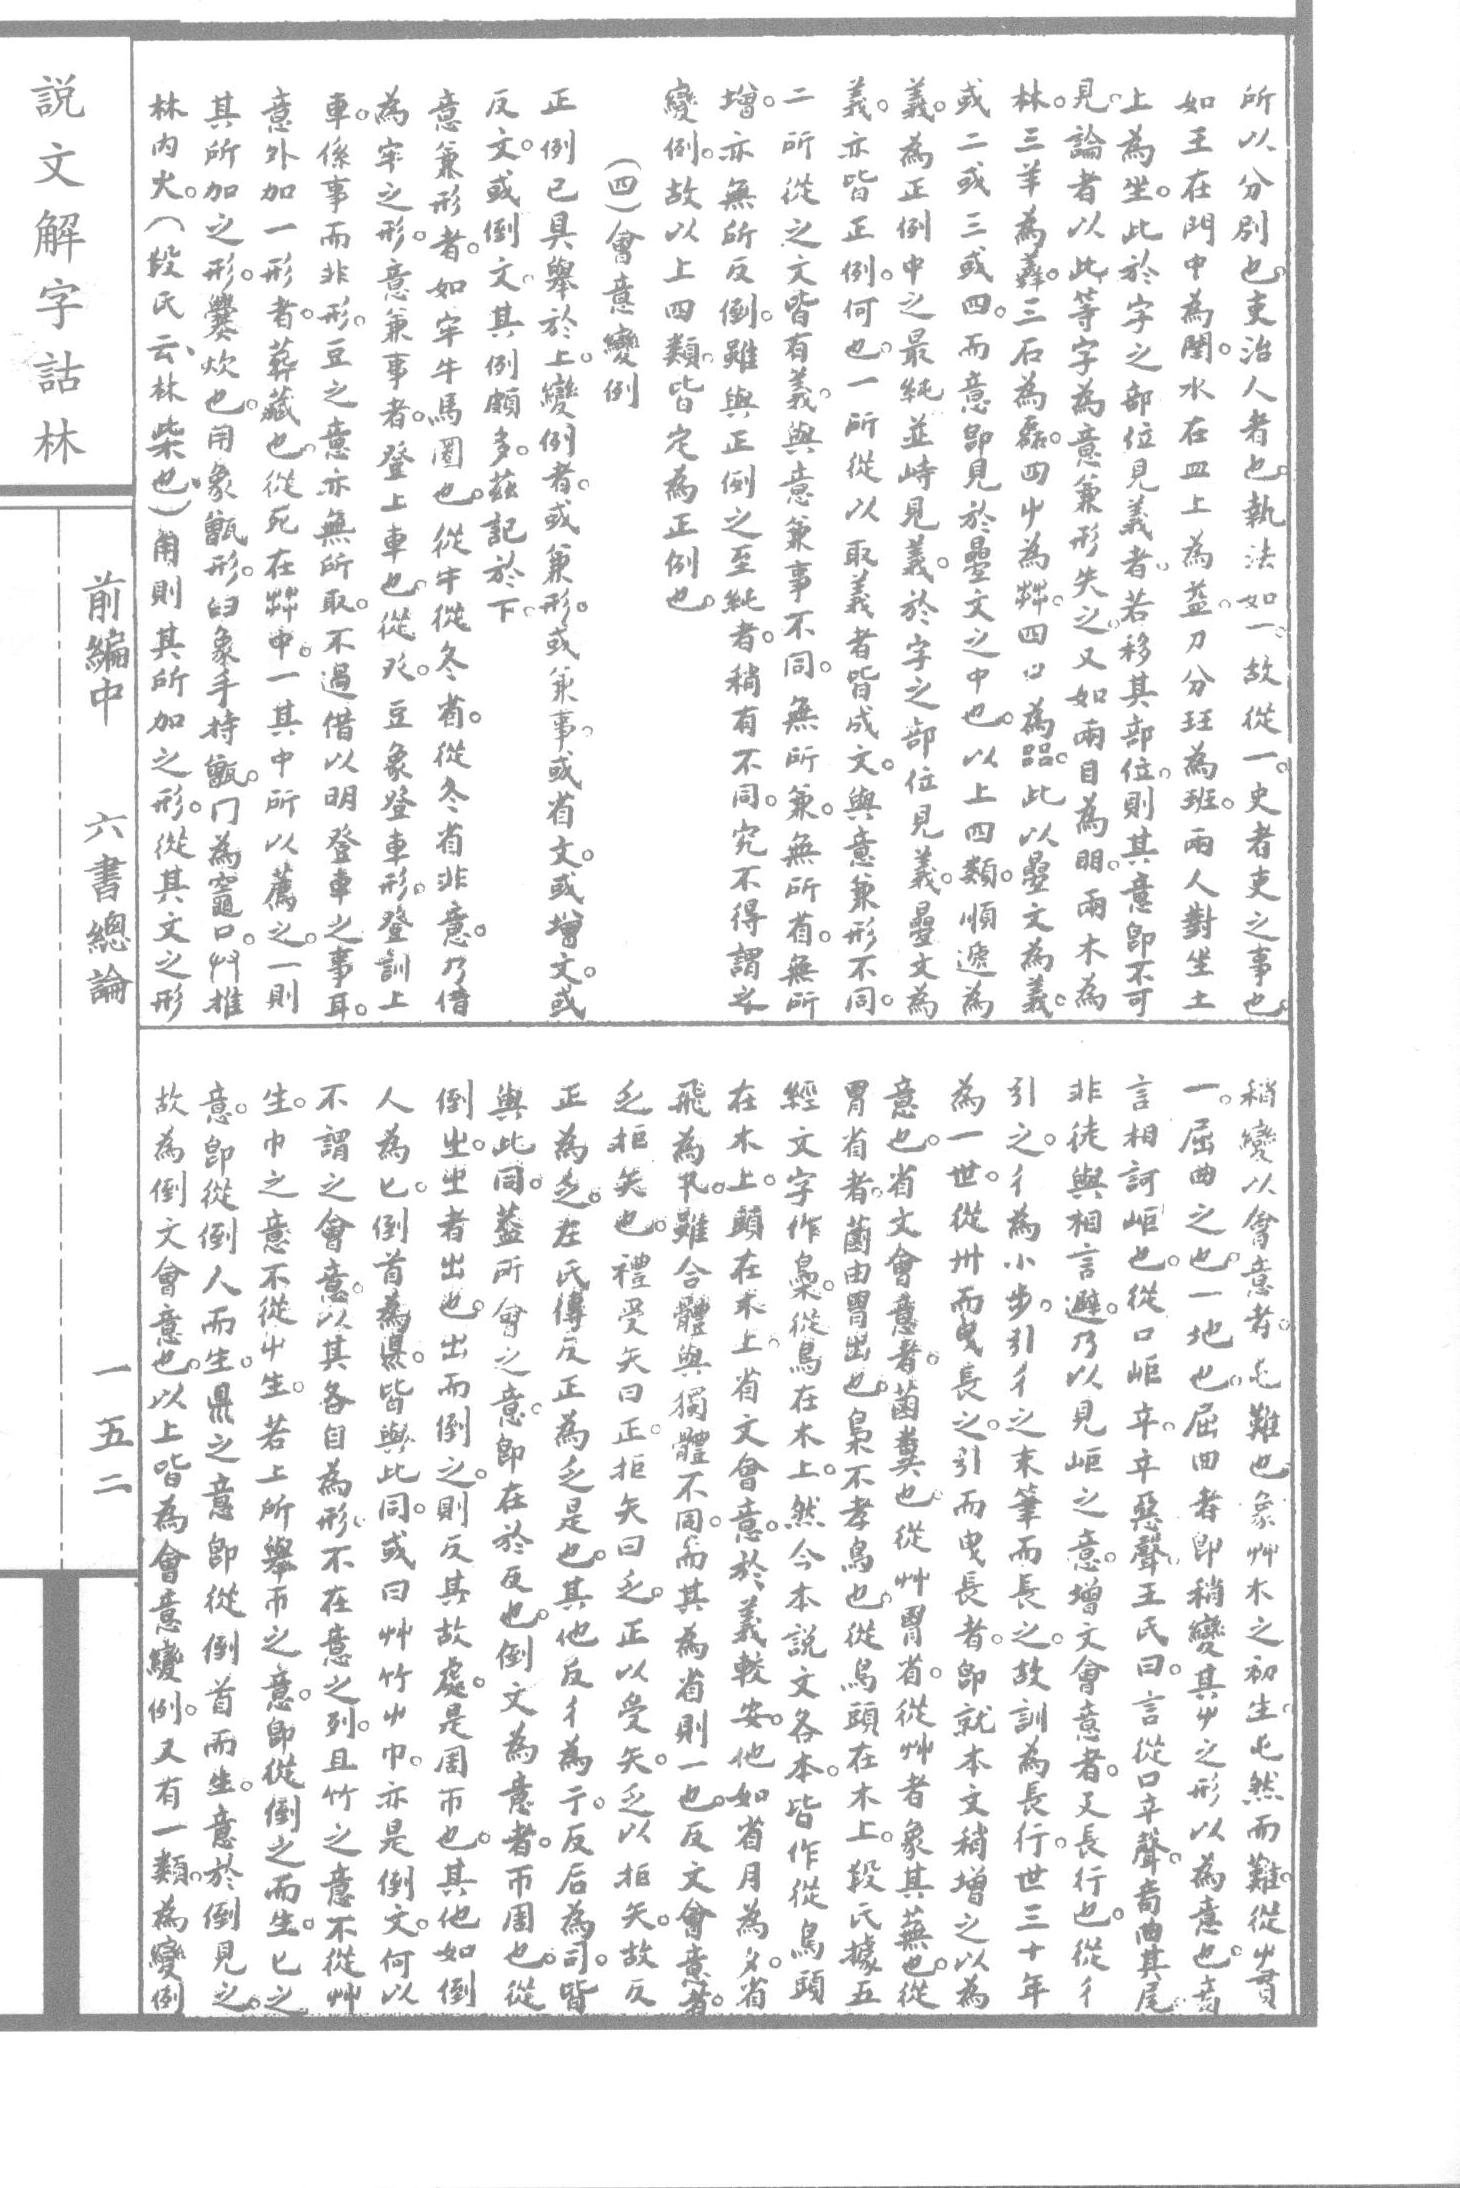 所以分別也。吏治人者也。執法如一。故從一。史者吏之事也。
如王在門中為閏。水在皿上為益。刀分玨為班。兩人對坐土
上為坐。此於字之部位見義者。若移其部位。則其意卽不可
見。論者以此等字為意兼形失之。又如兩目為䀠。兩木為
林。三羊為羴。三石為磊。四屮為茻。四口為㗊。此以疊文為義。
或二或三或四。而意卽見於疊文之中也。以上四類。順遞為
義。為正例中之最純並峙見義。於字之部位見義。疊文為
義。亦皆正例。何也。一所從以取義者皆成文。與意兼形不同。
二所從之文皆有義。與意兼事不同。無所兼。無所省。無所
增。亦無所反倒。雖與正例之至純者。稍有不同。究不得謂之
變例。故以上四類。皆定為正例也。
（四）會意變例
正例已具舉於上。變例者。或兼形。或兼事。或省文。或增文。或
反文。或倒文。其例頗多。茲記於下。
意兼形者。如牢牛馬圈也。從牛從冬省。從冬省非意。乃借
為牢之形。意兼事者。登上車也。從癶。豆象登車形。登訓上
車。係事而非形。豆之意亦無所取。不過借以明登車之事耳。
意外加一形者。葬藏也。從死在茻中。一其中所以薦之。一則
其所加之形。爨炊也。𦥑象甑形。臼象手持甑。冂為竈口。廾推
林內火。（段氏云、林柴也）𦥑則其所加之形。從其文之形
稍變以會意者。屯難也。象艸木之初生。屯然而難。從屮貫
一。屈曲之也。一地也。屈曲者卽稍變其屮之形以為意也。咅
言相訶歫也。從口歫䇂。䇂惡聲。王氏曰。言從口䇂聲。咅曲其尾。
非徒與相言避。乃以見歫之意。增文會意者。廴長行也。從彳
引之。彳為小步。引彳之末筆而長之。故訓為長行。世三十年
為一世。從卅而曳長之。引而曳長者。卽就本文稍增之以為
意也。省文會意者。菡糞也。從艸胃省。從艸者象其蕪也。從
胃省者。菌由胃出也。梟不孝鳥也。從鳥頭在木上。段氏據五
經文字作梟。從鳥在木上。然今本說文各本。皆作從鳥頭
在木上。頭在木上。省文會意。於義較安。他如省月為夕。省
飛為卂。雖合體與獨體不同。而其為省則一也。反文會意者。
乏拒矢也。禮受矢曰正。拒矢曰乏。正以受矢。乏以拒矢。故反
正為乏。左氏傳反正為乏是也。其他反彳為亍。反后為司。皆
與此同。蓋所會之意。卽在於反也。倒文為意者。帀周也。從
倒㞢。㞢者出也。出而倒之。則反其故處。是周帀也。其他如倒
人為匕。倒首為𥄉。皆與此同。或曰艸竹屮巾。亦是倒文。何以
不謂之會意。以其各自為形。不在意之列。且竹之意不從艸
生。巾之意不從屮生。若上所舉帀之意。卽從倒之而生。匕之
意。卽從倒人而生。𥄉之意卽從倒首而生。意於倒見之。
故為倒文會意也。以上皆為會意變例。又有一類。為變例
說文解字詁林
前編中　六書總論　一五二